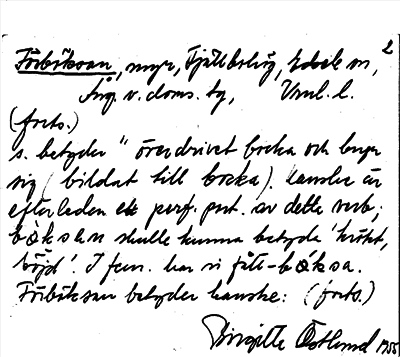 2
Förböksan, myr, Fjällbolåg, sn,
Ång. v. doms. tg, Vml. l.
(forts.)
s. betyder " överdrivet bocka och buga
sig (bildat till bocka). Kanske är
efterleden ett perf. part. av detta verb;
böksen skulle kunna betyda 'krökt,
böjd'. I fem. har vi fått -böksa.
Förböksan betyder kanske: (forts.)
Birgitta Östlund 1955